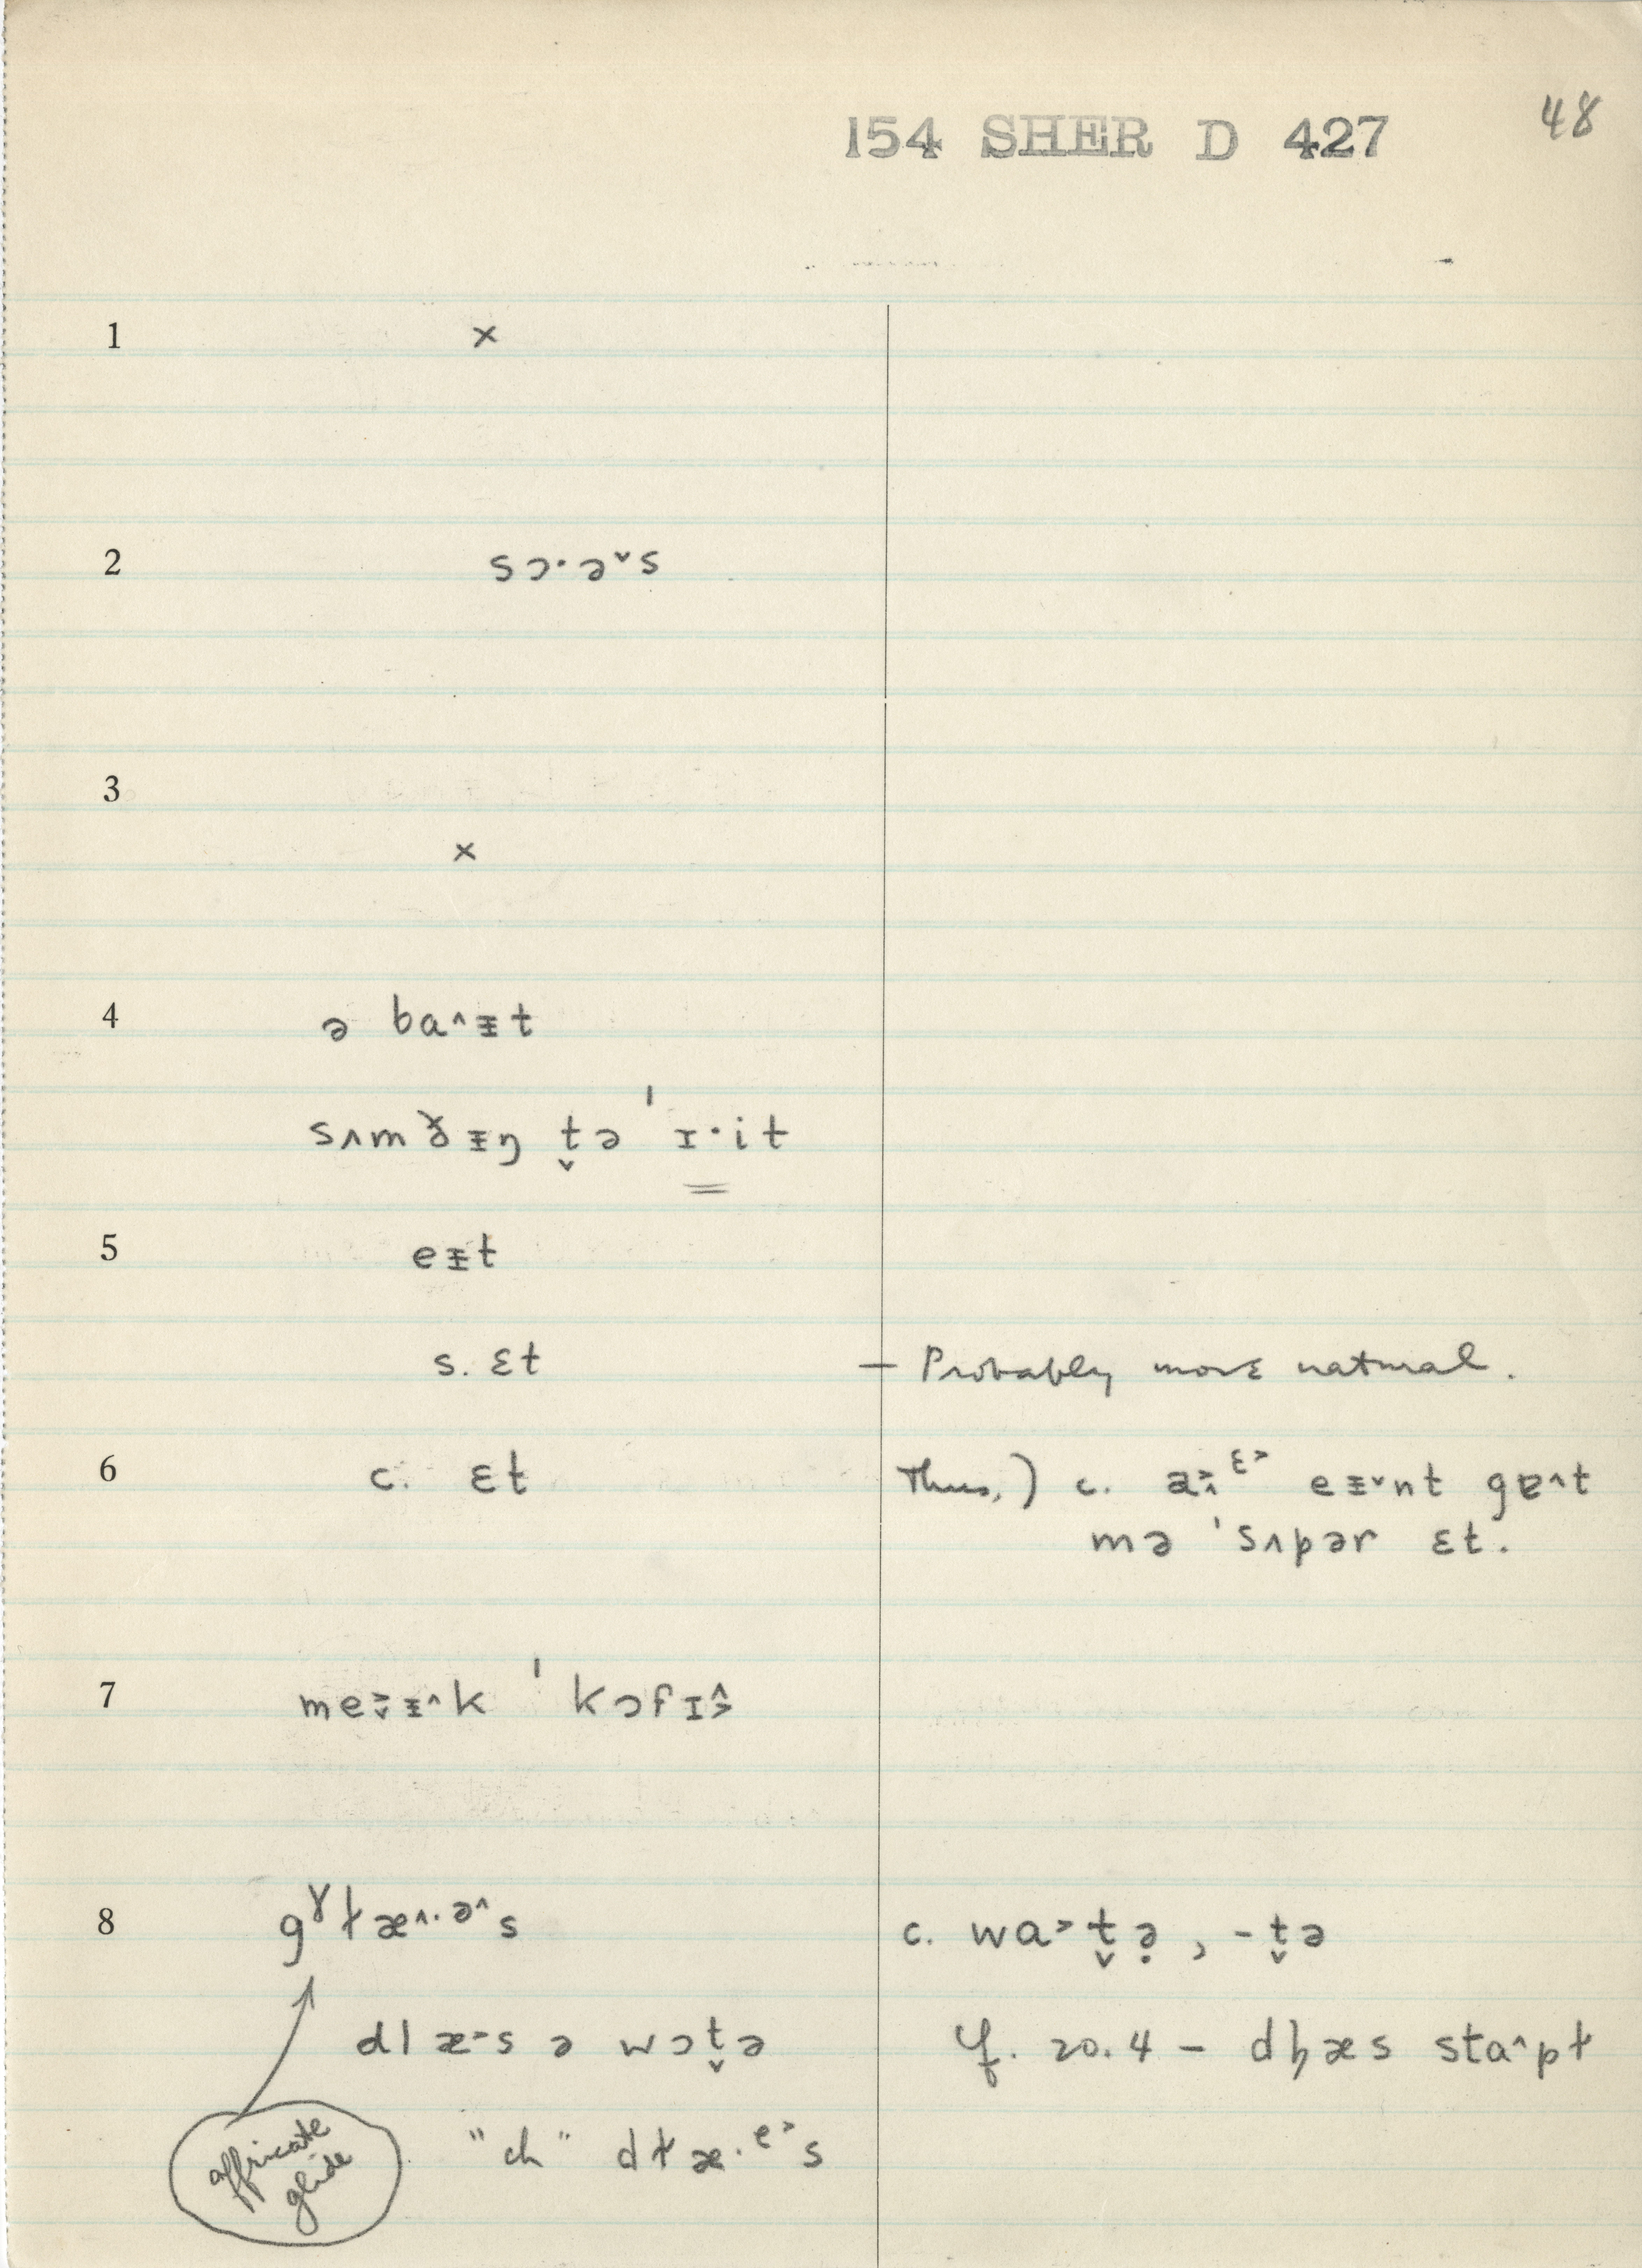 154 SHER D 427 48
1 ×
2 sɔ·ə˅s
3
×
4 ə ba˄ɪ̵t
sʌmðɪ̵ŋ t̬ə ˈɪ·it
5 eɪ̵t
s. ɛt — Probably more natural.
6 c. ɛt Thus,) c. eɪ̵˅nt gɐ˄t
mə ˈsʌpər ɛt.
7 ˈkɔfɪ
8 gˠɫæ˄·ə˄s c. wa˃t̬ə̣, -t̬ə
dlæ˃s ə wɔt̬ə cf. 20.4 – dl̥æs sta˄pɫ
affricate
glide
"ch" dɫæ·ᵉ˃s